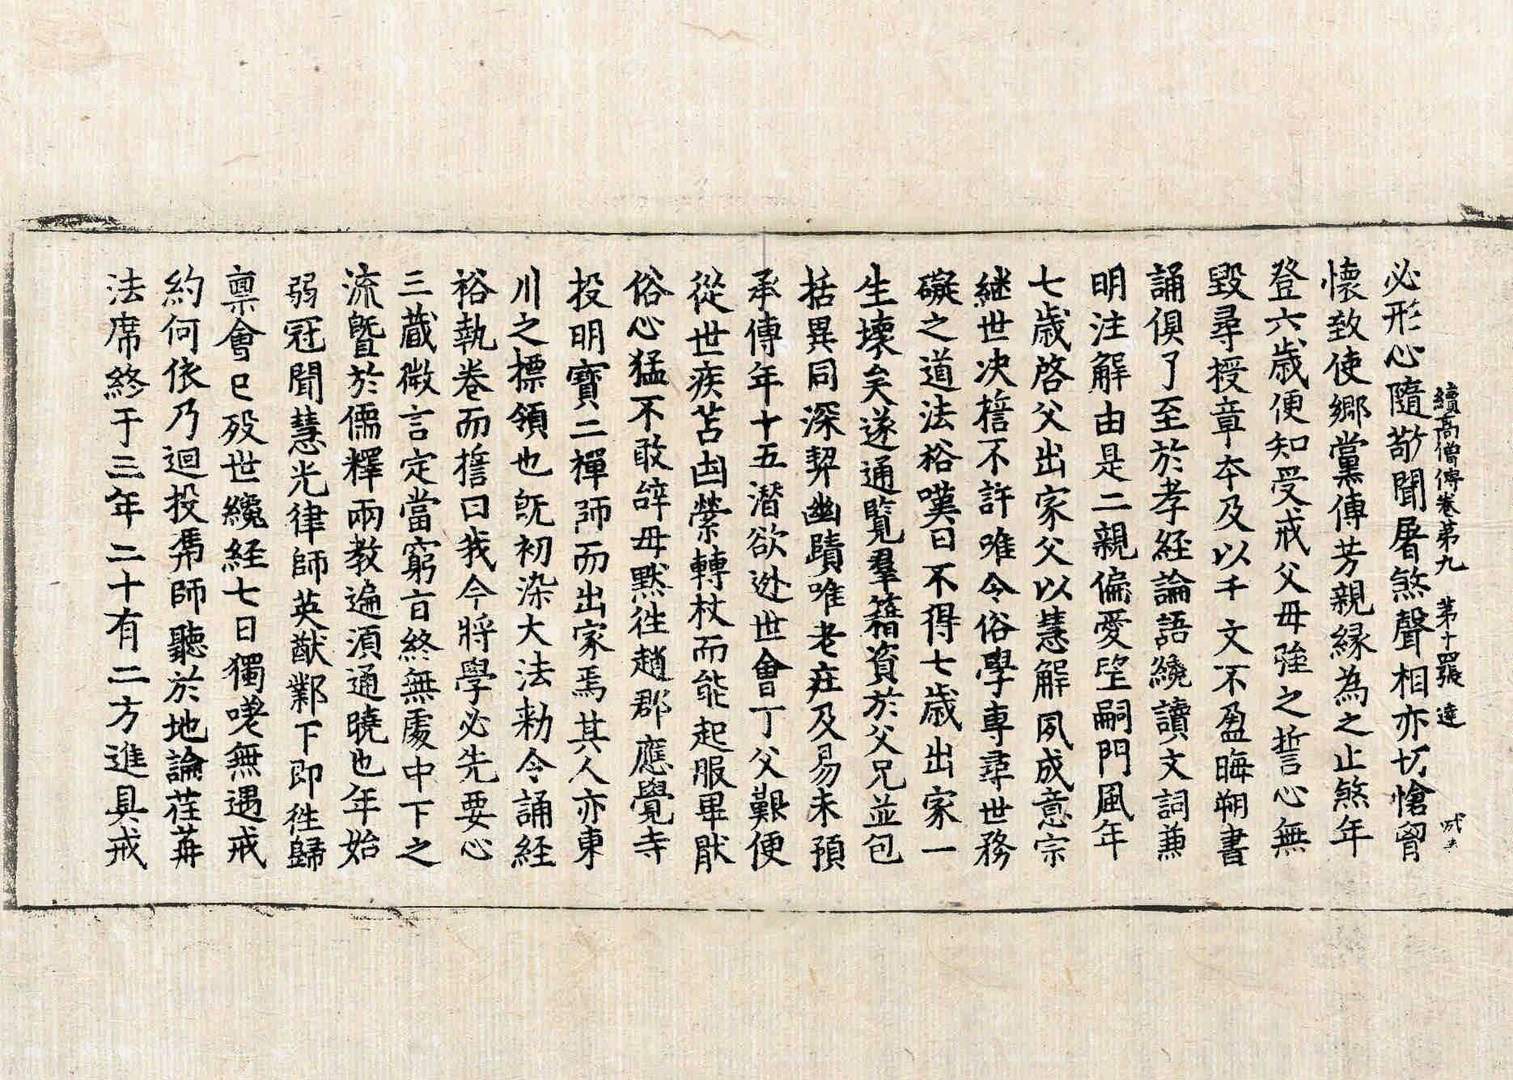 續高僧傳卷第九　第十四張　達
必形心隨斮聞屠煞聲相亦切愴胷
懷致使鄉黨傳芳親緣為之止煞年
登六歲便知受戒父母強之誓心無
毀尋授章本及以千文不盈晦朔書
誦俱了至於孝經論語纔讀文詞兼
明注解由是二親偏愛望嗣門風年
七歲啓父出家父以慧解夙成意宗
継世决捨不許唯令俗學專尋世務
礙之道法裕嘆曰不得七歲出家一
生壞矣遂通覽羣籍資於父兄並包
括異同深契幽賾唯老莊及易未預
承傳年十五潛欲迯世會丁父艱便
從世疾苫凷縈轉杖而能起服畢猒
俗心猛不敢辞母黙往趙郡應覺寺
投明寶二禪師而出家焉其人亦東
川之標領也旣初染大法勑令誦経
裕執卷而誓曰我今將學必先要心
三藏微言定當窮旨終無處中下之
流曁於儒釋兩教遍湏通曉也年始
弱冠聞慧光律師英猷鄴下即往歸
禀會已殁世纔経七日獨嗟無遇戒
約何依乃迴投馮師聽於地論荏苒
法席終于三年二十有二方進具戒